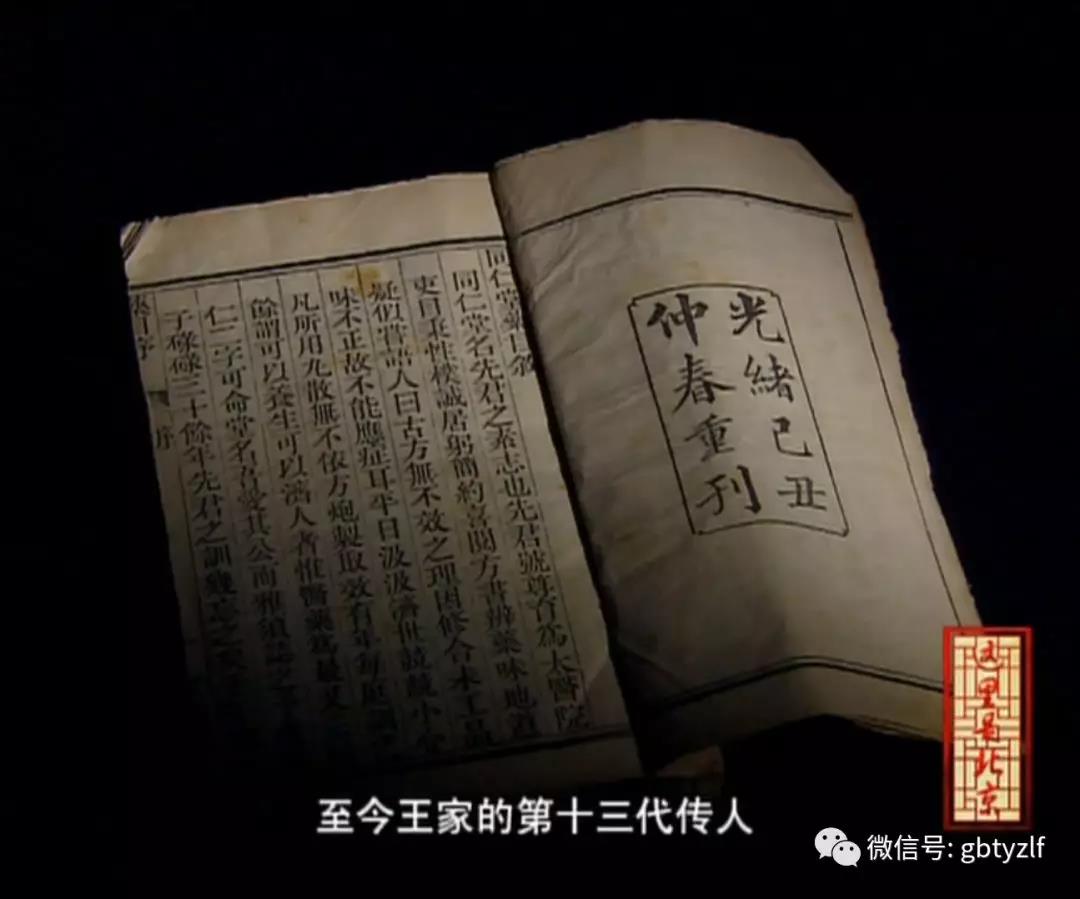 光緒己丑
仲春重刊
同仁堂藥目叙
同仁堂名先君之素志也先君號尊育為太醫院
吏目秉性樸誠居躬簡約喜閱方書辨藥味地道
疑似嘗語人曰古方無不效之理因修合未工品
味不正故不能應症耳平日汲汲濟世兢兢小
凡所用丸散無不依方炮製取效有年每庭
餘謂可以養生可以濟人者惟醫藥為最又
仁二字可命堂名吾愛其公而雅須誌之
子碌碌三十餘年先君之訓幾忘之
目序
序
这里是北京
至今王家的第十三代传人
微信号: gbtyzlf